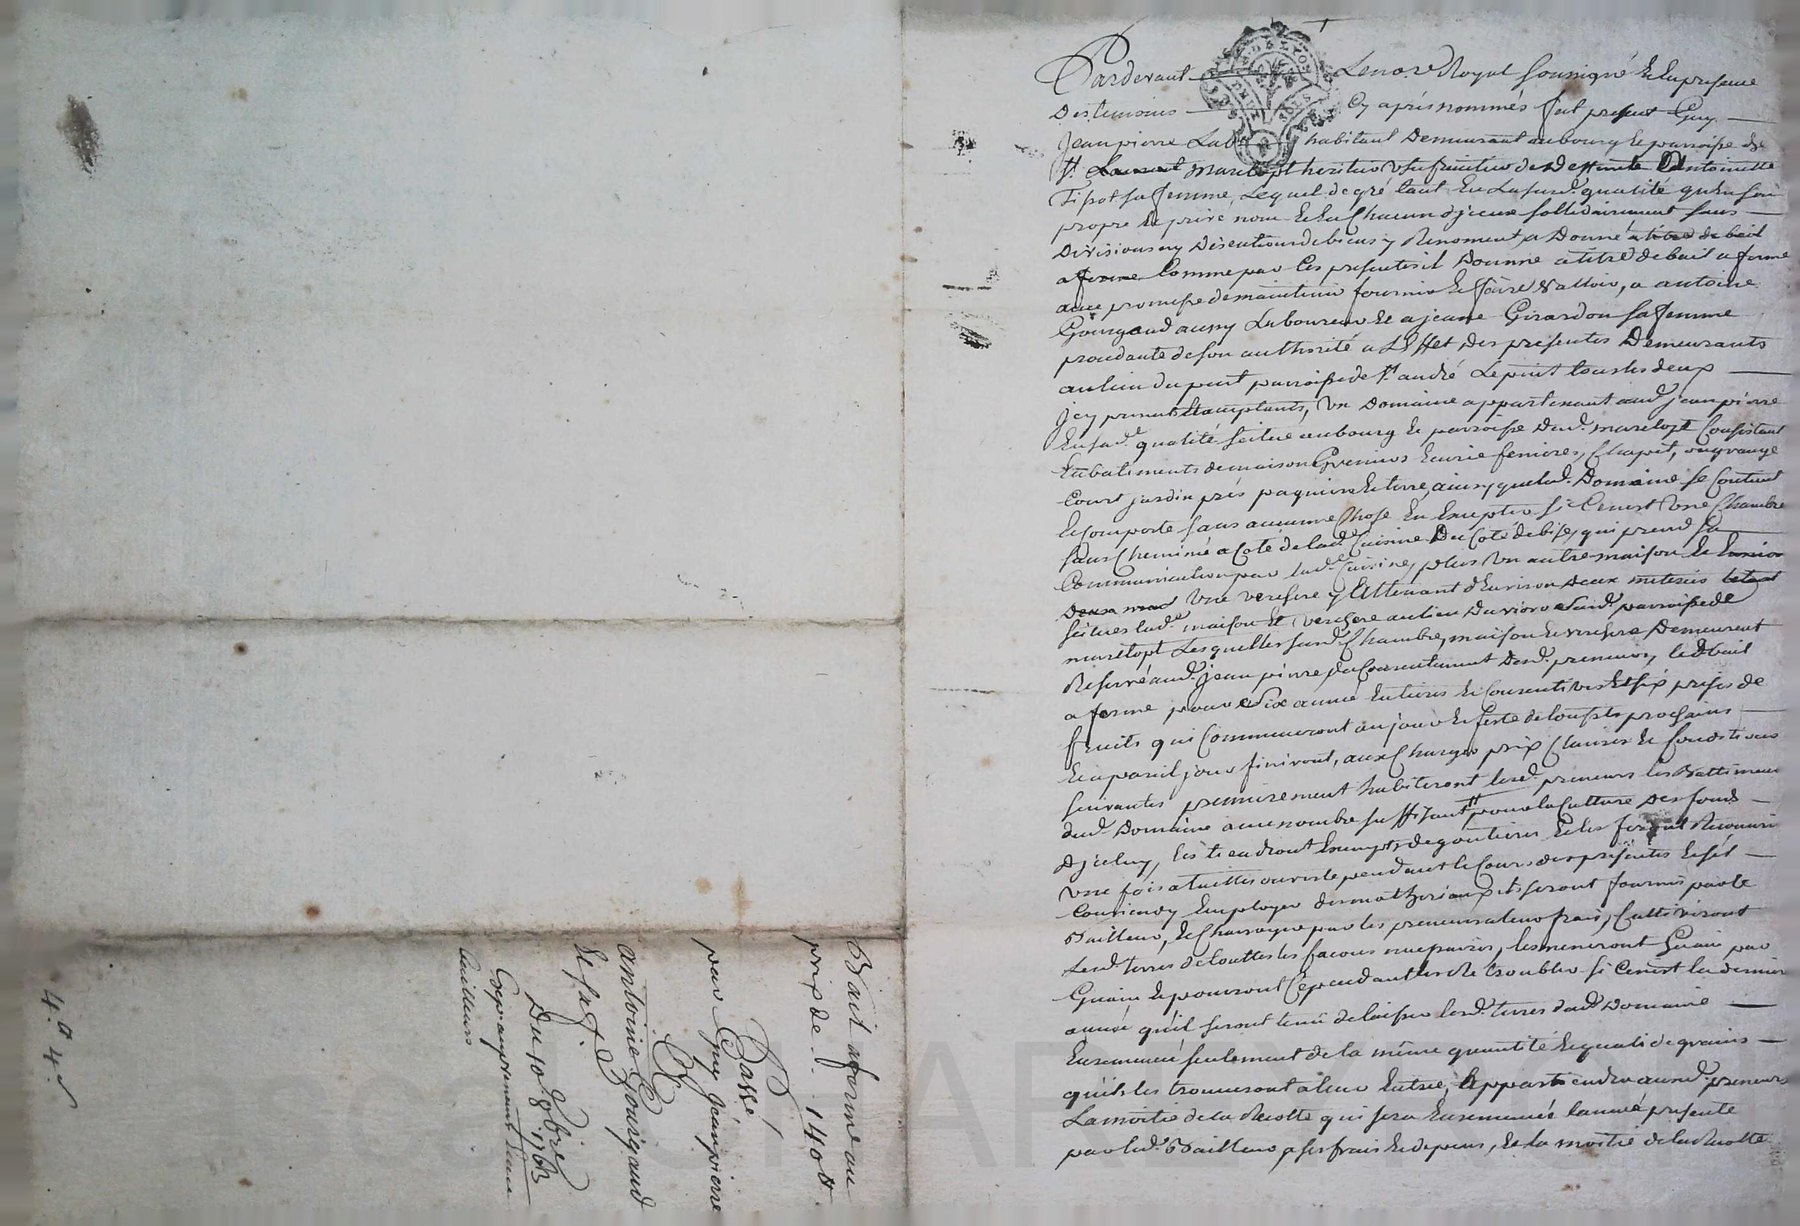 Pardevant Le no.re Royal soussigné et en presence
Des temoins cy aprés nommés fut present Guy
Jean pierre habitant Demeurant au bourg et parroisse de
St. Laurent Maretopt heritier usufruitier de Deffunte Antoinette
Tipot sa femme, Lequel de gré tant En La susd.e qualité qu'en son
propre et privé nom et en Chacun d'jceux sollidairement sans
Division ny Discution de biens y Renoncant a Donné a titre de bail
a ferme Comme par Ces presentes il Donne a titre de bail a ferme
avec promesse de maintenir fournir et faire Valloir, a antoine
Gourgaud aussy Laboureur et a jeane Girardon sa femme
procedante de son authorité a L'Effet Des presentes Demeurants
au lieu du puit parroisse de St. andré Le puit tous les deux
jcy presents et acceptants, un Domaine appartenant aud. jean pierre
En sad.e qualité scitué au bourg et parroisse dud. maretopt Consistant
En batiments de maison Greniers Ecurie fenieres, Chapit, ou grange
Court jardin prés paquiers et terre, ainsy que led. Domaine se Contient
et Comporte sans aucunne Chose En Excepter si Ce n'est Une Chambre
sans Cheminé a Coté de lad.e Cuisine Du Coté de bise, qui prend sa
Communication par lad.e Cuisine, plus un autre maison et
Deux Une verchere y Attenant d'Environ Deux meterés
scitues lad.e maison et verchere au lieu Duviore susd. parroisse de
maretopt Lesquelles susd. Chambre, maison et verchere Demeurent
Reservé aud. jean pierre du Consentement Desd. preneurs, led. bail
a ferme pour six année Entieres et Consecutives et six prises de
fruits qui Commenceront au jour et feste de toussts prochains
et a pareil jour finiront, aux Charges prix Clauses et Conditions
suivantes premierement habiteront lesd. preneurs les Battiments
dud. Domaine avec nombre suffisant pour la Culture Des fonds
D'jceluy, les tiendront Exempts de goutieres et les feront Recouvrir
Une fois a tuilles ouverte pendant le Cours des presentes et s'il
Convient y Employer des matheriaux ils seront fournis par le
Bailleur, et Charroyer par les preneurs a leur frais, Cultiveront
Lesd. terres de touttes les facons necessaires, les meneront Guain par
Guain et pourront Cependant les troubler si Ce n'est la derniere
année qu'il seront tenü de laisser lesd. terres dud. Domaine
Ensemencé seulement de la même quantité et qualité de grains
qu'ils les trouveront a leur Entrée, et appartiendra auxd. preneurs
La moitié de la Recolte qui sera Ensemencé l'année presente
par led. Bailleur a ses frais et depens, et la moitié de la Recolte
Bail a ferme au
prix de - 140 ll
Passé
par Guy Jean pierre
A
antoine Gourgaud
et sa fe.
Du 10 8bre 1763
Expedition
Bailleurs
4. a 4. s